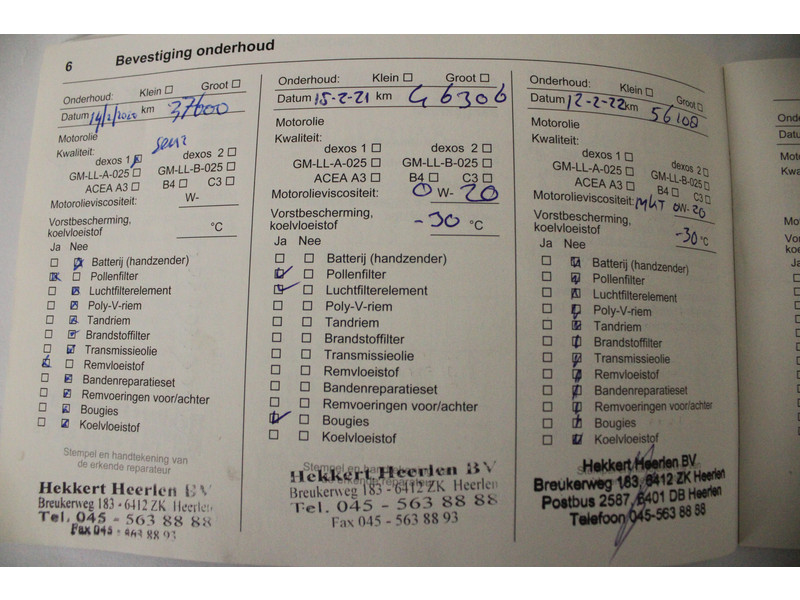 6 Bevestiging onderhoud
Onderhoud: Klein ☐ Groot ☐
Datum 14/2/2020 km 37600
Motorolie
Kwaliteit:
dexos 1 ☑ dexos 2 ☐
GM-LL-A-025 ☐ GM-LL-B-025 ☐
ACEA A3 ☐ B4 ☐ C3 ☐
Motorolieviscositeit: W-
Vorstbescherming,
koelvloeistof °C
Ja Nee
☐ ☑ Batterij (handzender)
☑ ☐ Pollenfilter
☐ ☑ Luchtfilterelement
☐ ☑ Poly-V-riem
☐ ☑ Tandriem
☐ ☑ Brandstoffilter
☐ ☑ Transmissieolie
☑ ☐ Remvloeistof
☐ ☑ Bandenreparatieset
☐ ☑ Remvoeringen voor/achter
☐ ☑ Bougies
☐ ☑ Koelvloeistof
Stempel en handtekening van
de erkende reparateur
Hekkert Heerlen BV
Breukerweg 183 - 6412 ZK Heerlen
Tel. 045 - 563 88 88
Fax 045 - 563 88 93
Onderhoud: Klein ☐ Groot ☐
Datum 15-2-21 km 46306
Motorolie
Kwaliteit:
dexos 1 ☐ dexos 2 ☐
GM-LL-A-025 ☐ GM-LL-B-025 ☐
ACEA A3 ☐ B4 ☐ C3 ☐
Motorolieviscositeit: 0 W- 20
Vorstbescherming,
koelvloeistof -30 °C
Ja Nee
☐ ☐ Batterij (handzender)
☑ ☐ Pollenfilter
☑ ☐ Luchtfilterelement
☐ ☐ Poly-V-riem
☐ ☐ Tandriem
☐ ☐ Brandstoffilter
☐ ☐ Transmissieolie
☐ ☐ Remvloeistof
☐ ☐ Bandenreparatieset
☐ ☐ Remvoeringen voor/achter
☑ ☐ Bougies
☐ ☐ Koelvloeistof
Hekkert Heerlen BV
Breukerweg 183 - 6412 ZK Heerlen
Tel. 045 - 563 88 88
Fax 045 - 563 88 93
Onderhoud: Klein ☐ Groot ☐
Datum 12-2-22 km 56108
Motorolie
Kwaliteit:
dexos 1 ☐ dexos 2 ☐
GM-LL-A-025 ☐ GM-LL-B-025 ☐
ACEA A3 ☐ B4 ☐ C3 ☐
Motorolieviscositeit: 0W-20
Vorstbescherming,
koelvloeistof -30 °C
Ja Nee
☐ ☑ Batterij (handzender)
☐ ☑ Pollenfilter
☐ ☑ Luchtfilterelement
☐ ☑ Poly-V-riem
☐ ☑ Tandriem
☐ ☑ Brandstoffilter
☐ ☑ Transmissieolie
☐ ☑ Remvloeistof
☐ ☑ Bandenreparatieset
☐ ☑ Remvoeringen voor/achter
☐ ☑ Bougies
☐ ☑ Koelvloeistof
Hekkert Heerlen BV
Breukerweg 183, 6412 ZK Heerlen
Postbus 2587, 6401 DB Heerlen
Telefoon 045-563 88 88